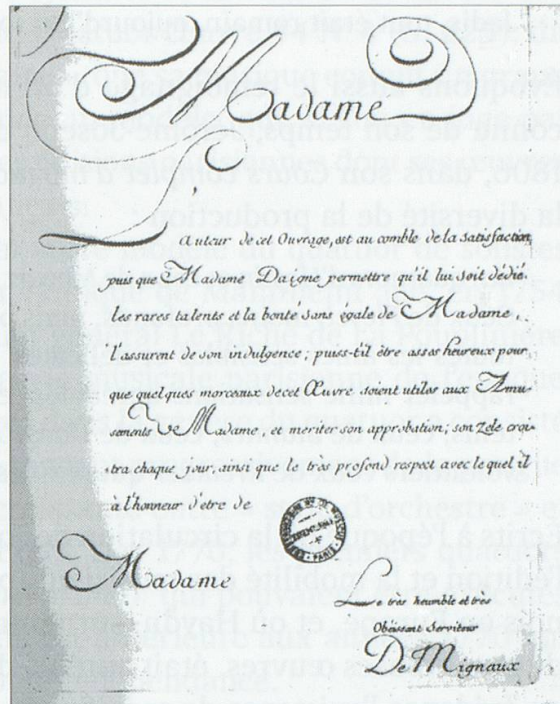 Madame
L'auteur de cet Ouvrage, est au comble de la satisfaction
puis que Madame Daigne permettre qu'il lui soit dédié.
les rares talents et la bonté sans égale de Madame,
l'assurent de son indulgence; puiss-t'il être asses heureux pour
que quelques morceaux de cet Œuvre soient utiles aux Amu-
sements De Madame, et meriter son approbation; son zele croi-
tra chaque jour, ainsi que le très profond respect avec le quel il
à l'honneur d'etre de
Madame
Le très humble et très
Obeissant Serviteur
De Mignaux